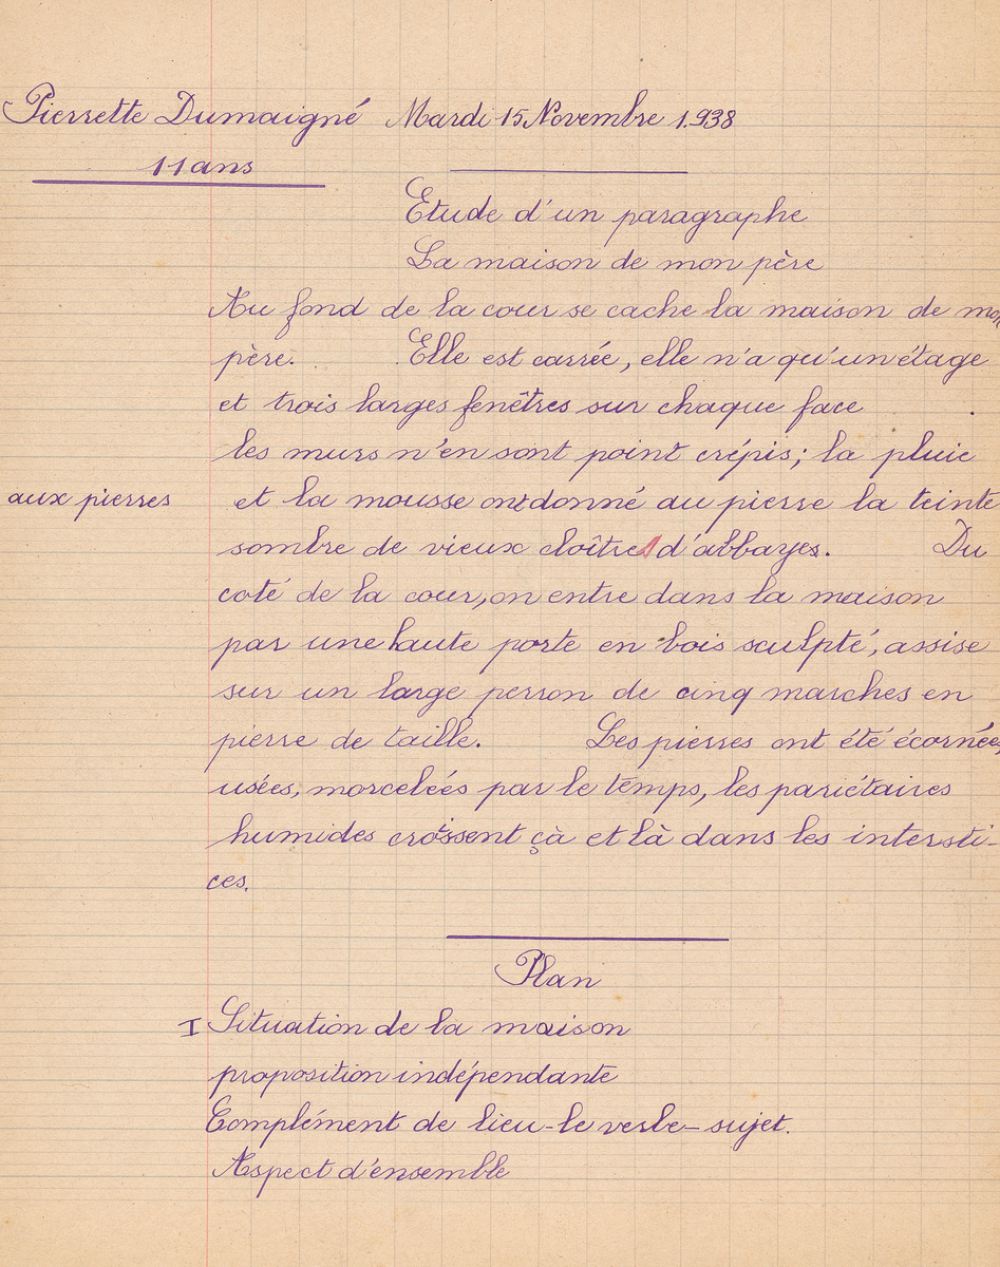 Pierrette Dumaigné Mardi 15 Novembre 1.938
11 ans
Etude d'un paragraphe
La maison de mon père
Au fond de la cour se cache la maison de mon
père. Elle est carrée, elle n'a qu'un étage
et trois larges fenêtres sur chaque face.
les murs n'en sont point crépis; la pluie
aux pierres et la mousse ont donné au pierre la teinte
sombre de vieux cloîtres d'abbayes. Du
coté de la cour, on entre dans la maison
par une haute porte en bois sculpté, assise
sur un large perron de cinq marches en
pierre de taille. Les pierres ont été écornées,
usées, morcelées par le temps, les pariétaires
humides croissent çà et là dans les intersti-
ces.
Plan
I Situation de la maison
proposition indépendante
Complément de lieu - le verbe - sujet.
Aspect d'ensemble